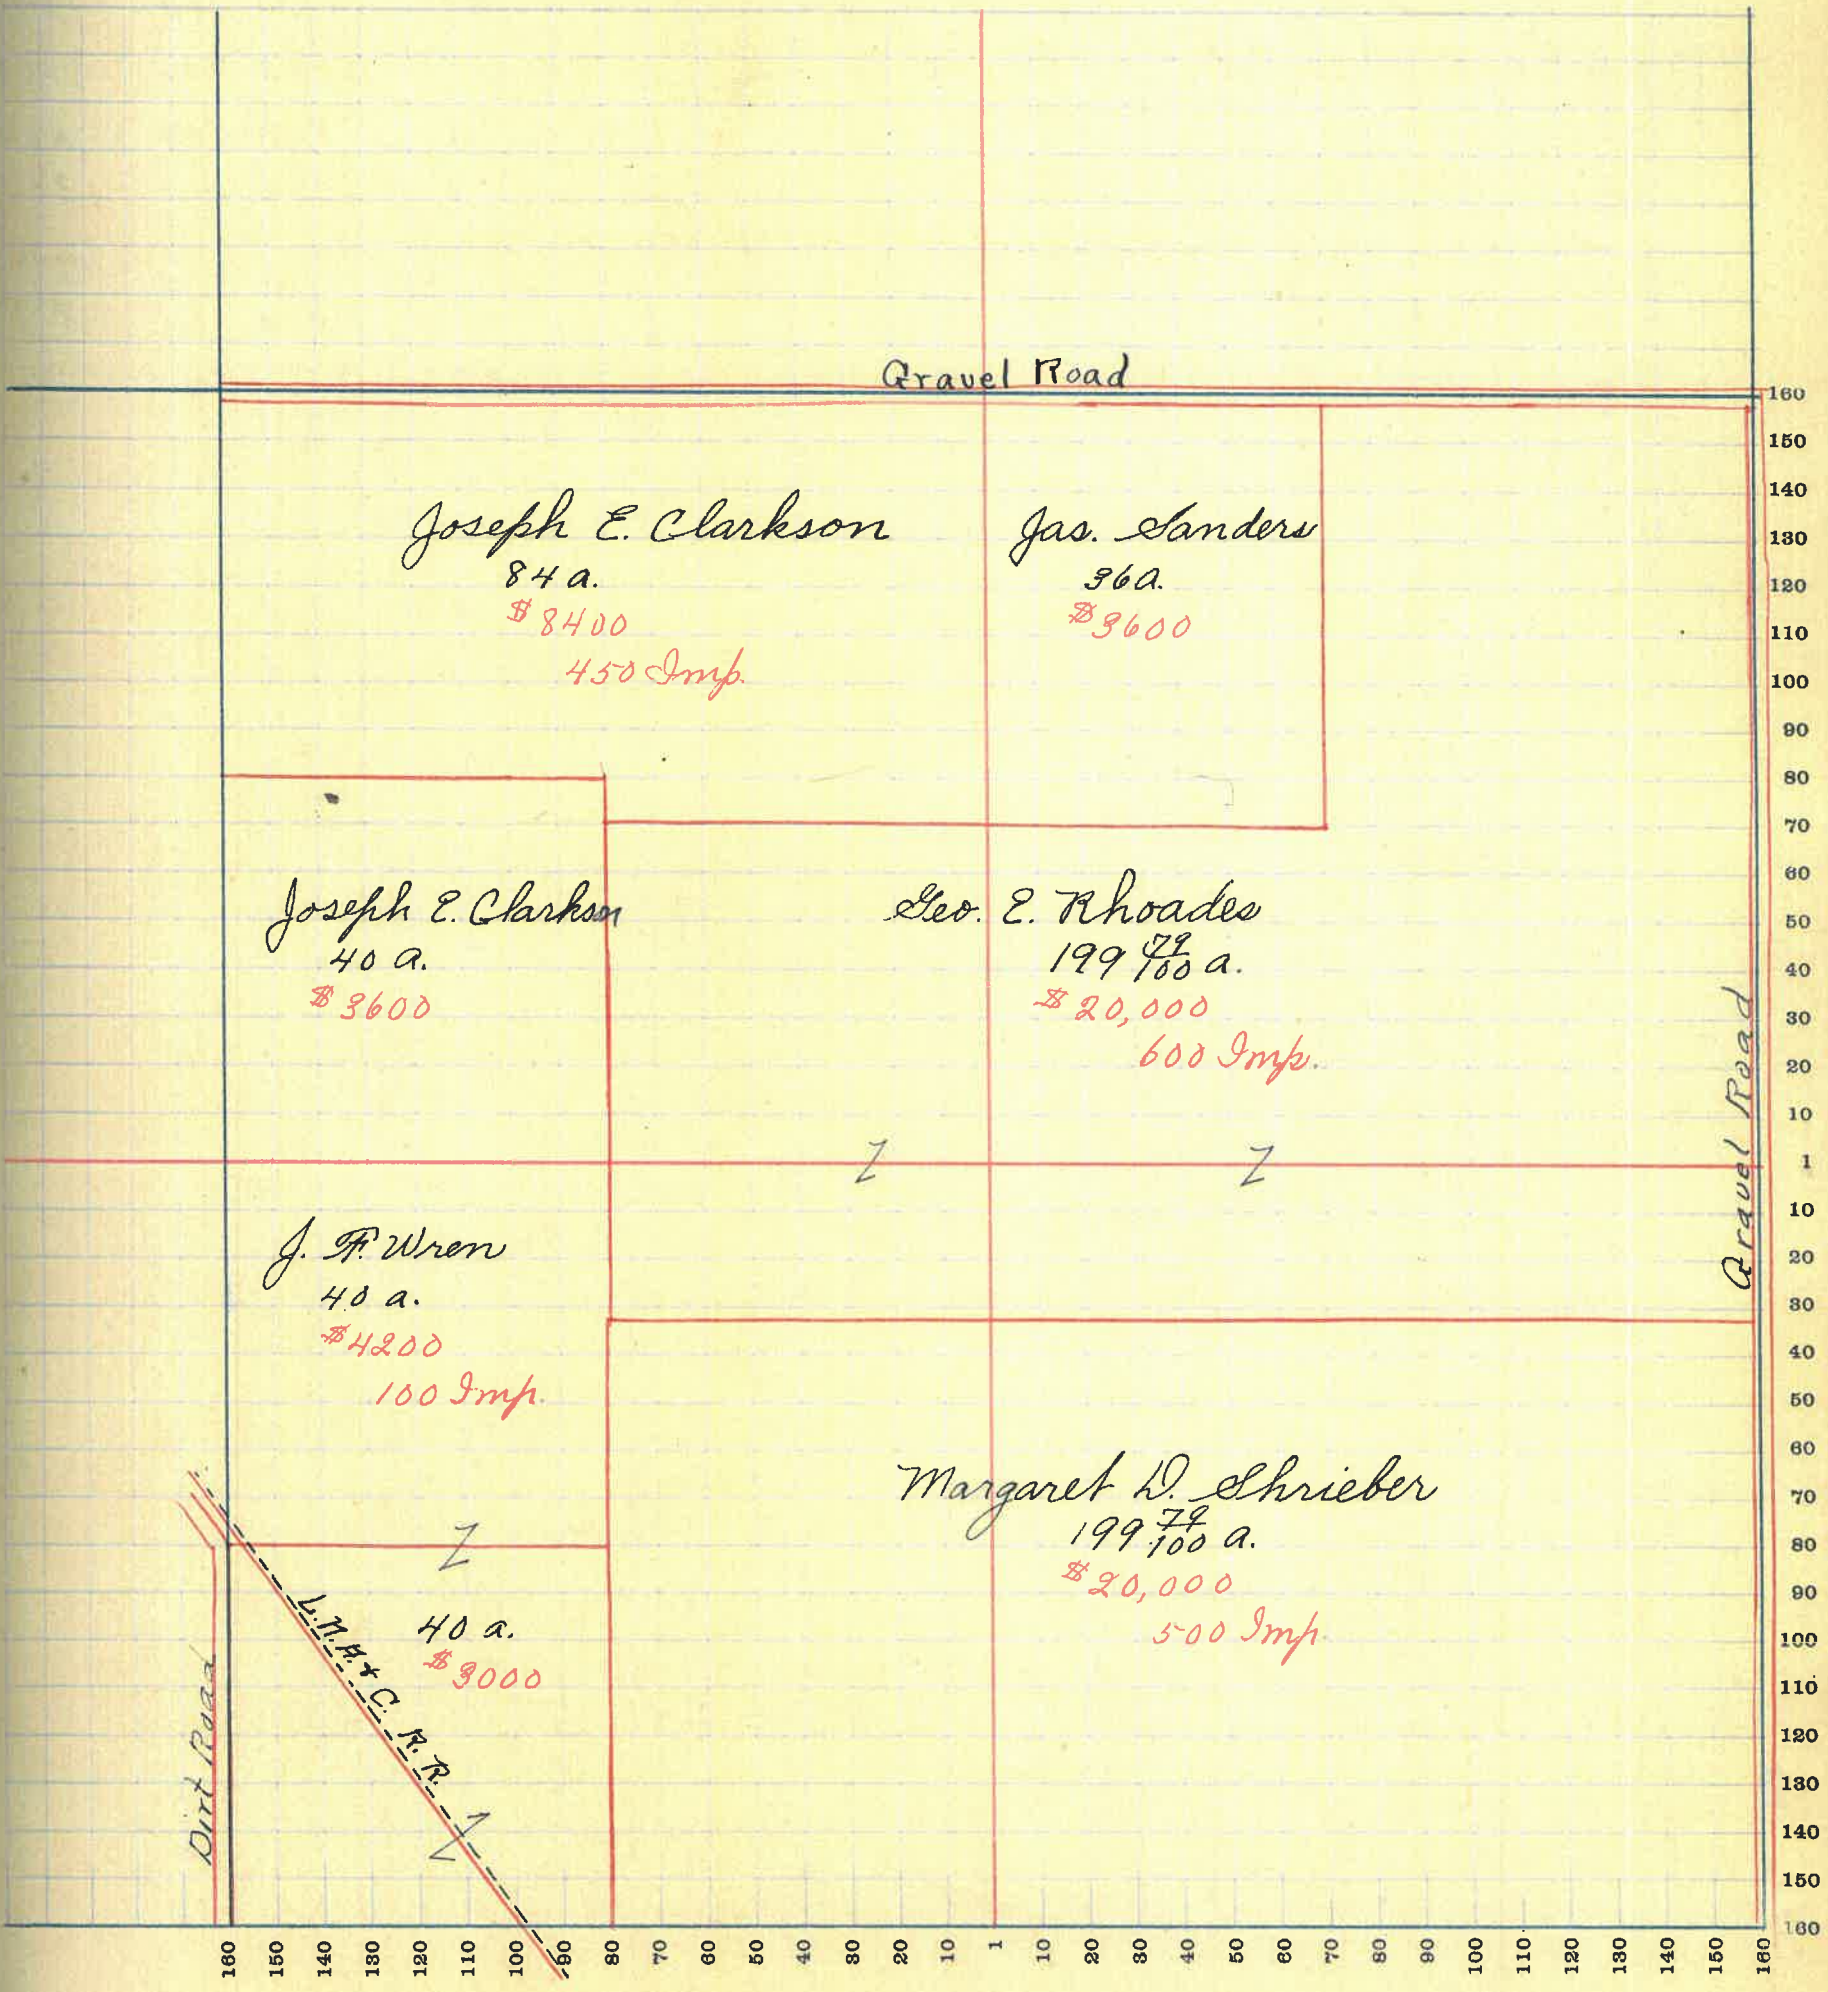 Gravel Road
Joseph E. Clarkson
84 a.
$8400
450 Imp.
Jas. Sanders
36 a.
$3600
Joseph E. Clarkson
40 a.
$3600
Geo. E. Rhoades
199 79/100 a.
$20,000
600 Imp.
Z
Z
J. F. Wren
40 a.
$4200
100 Imp.
Z
Margaret D. Shrieber
199 79/100 a.
$20,000
500 Imp.
40 a.
$3000
L.N.A. & C. R. R.
Z
Dirt Road
Gravel Road
160
150
140
130
120
110
100
90
80
70
60
50
40
30
20
10
1
10
20
30
40
50
60
70
80
90
100
110
120
130
140
150
160
160 150 140 130 120 110 100 90 80 70 60 50 40 30 20 10 1 10 20 30 40 50 60 70 80 90 100 110 120 130 140 150 160